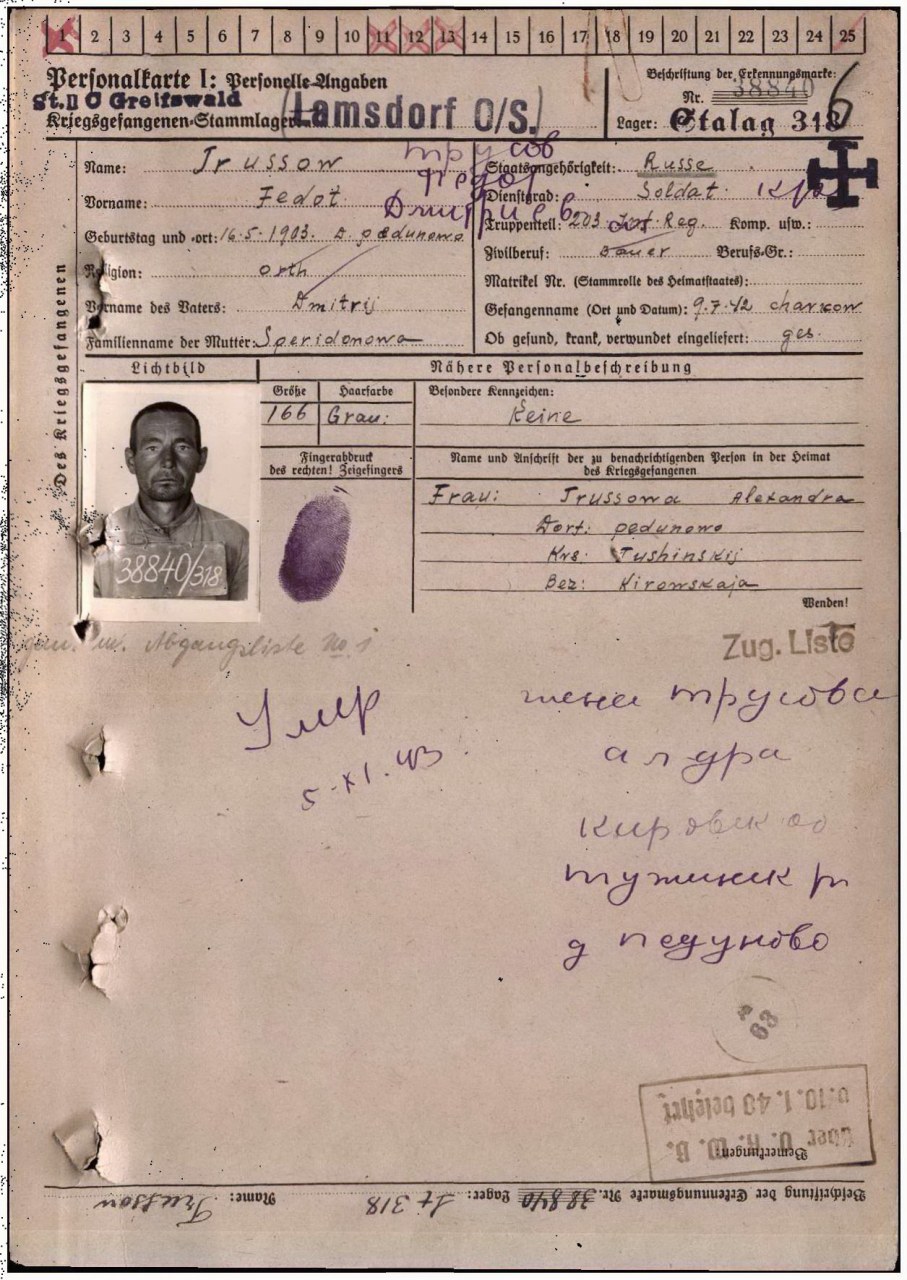 1 2 3 4 5 6 7 8 9 10 11 12 13 14 15 16 17 18 19 20 21 22 23 24 25
Personalkarte I: Personelle Angaben
St. II C Greifswald
Kriegsgefangenen-Stammlager: Lamsdorf O/S.
Beschriftung der Erkennungsmarke:
Nr. 38840
Lager: Stalag 318
Des Kriegsgefangenen
Name: Trussow
Трусов
Vorname: Fedot
Федот
Дмитриев
Geburtstag und -ort: 16.5.1903. D. pedunowo
Religion: orth
Vorname des Vaters: Dmitrij
Familienname der Mutter: Speridonowa
Staatsangehörigkeit: Russe
Dienstgrad: Soldat
Truppenteil: 203 Inf. Reg. Komp. usw.:
Zivilberuf: Bauer Berufs-Gr.:
Matrikel Nr. (Stammrolle des Heimatstaates):
Gefangenname (Ort und Datum): 9.7.42 charkow
Ob gesund, krank, verwundet eingeliefert: ges.
Lichtbild
Nähere Personalbeschreibung
Größe Haarfarbe
166 Grau:
Besondere Kennzeichen:
Keine
Fingerabdruck
des rechten! Zeigefingers
38840/318
Name und Anschrift der zu benachrichtigenden Person in der Heimat
des Kriegsgefangenen
Frau: Trussowa Alexandra
Dorf: pedunowo
Krs: Tushinskij
Bez: Kirowskaja
Wenden!
Abgangsliste No 1
Zug. Liste
Умер
5-XI.43
жена трусова
кировск об
тужинск рн
д педуново
63
Bemerkungen:
über U. K. W. B.
10.1.40 belehrt
Beschriftung der Erkennungsmarke Nr. 38840 Lager: St 318 Name: Trussow